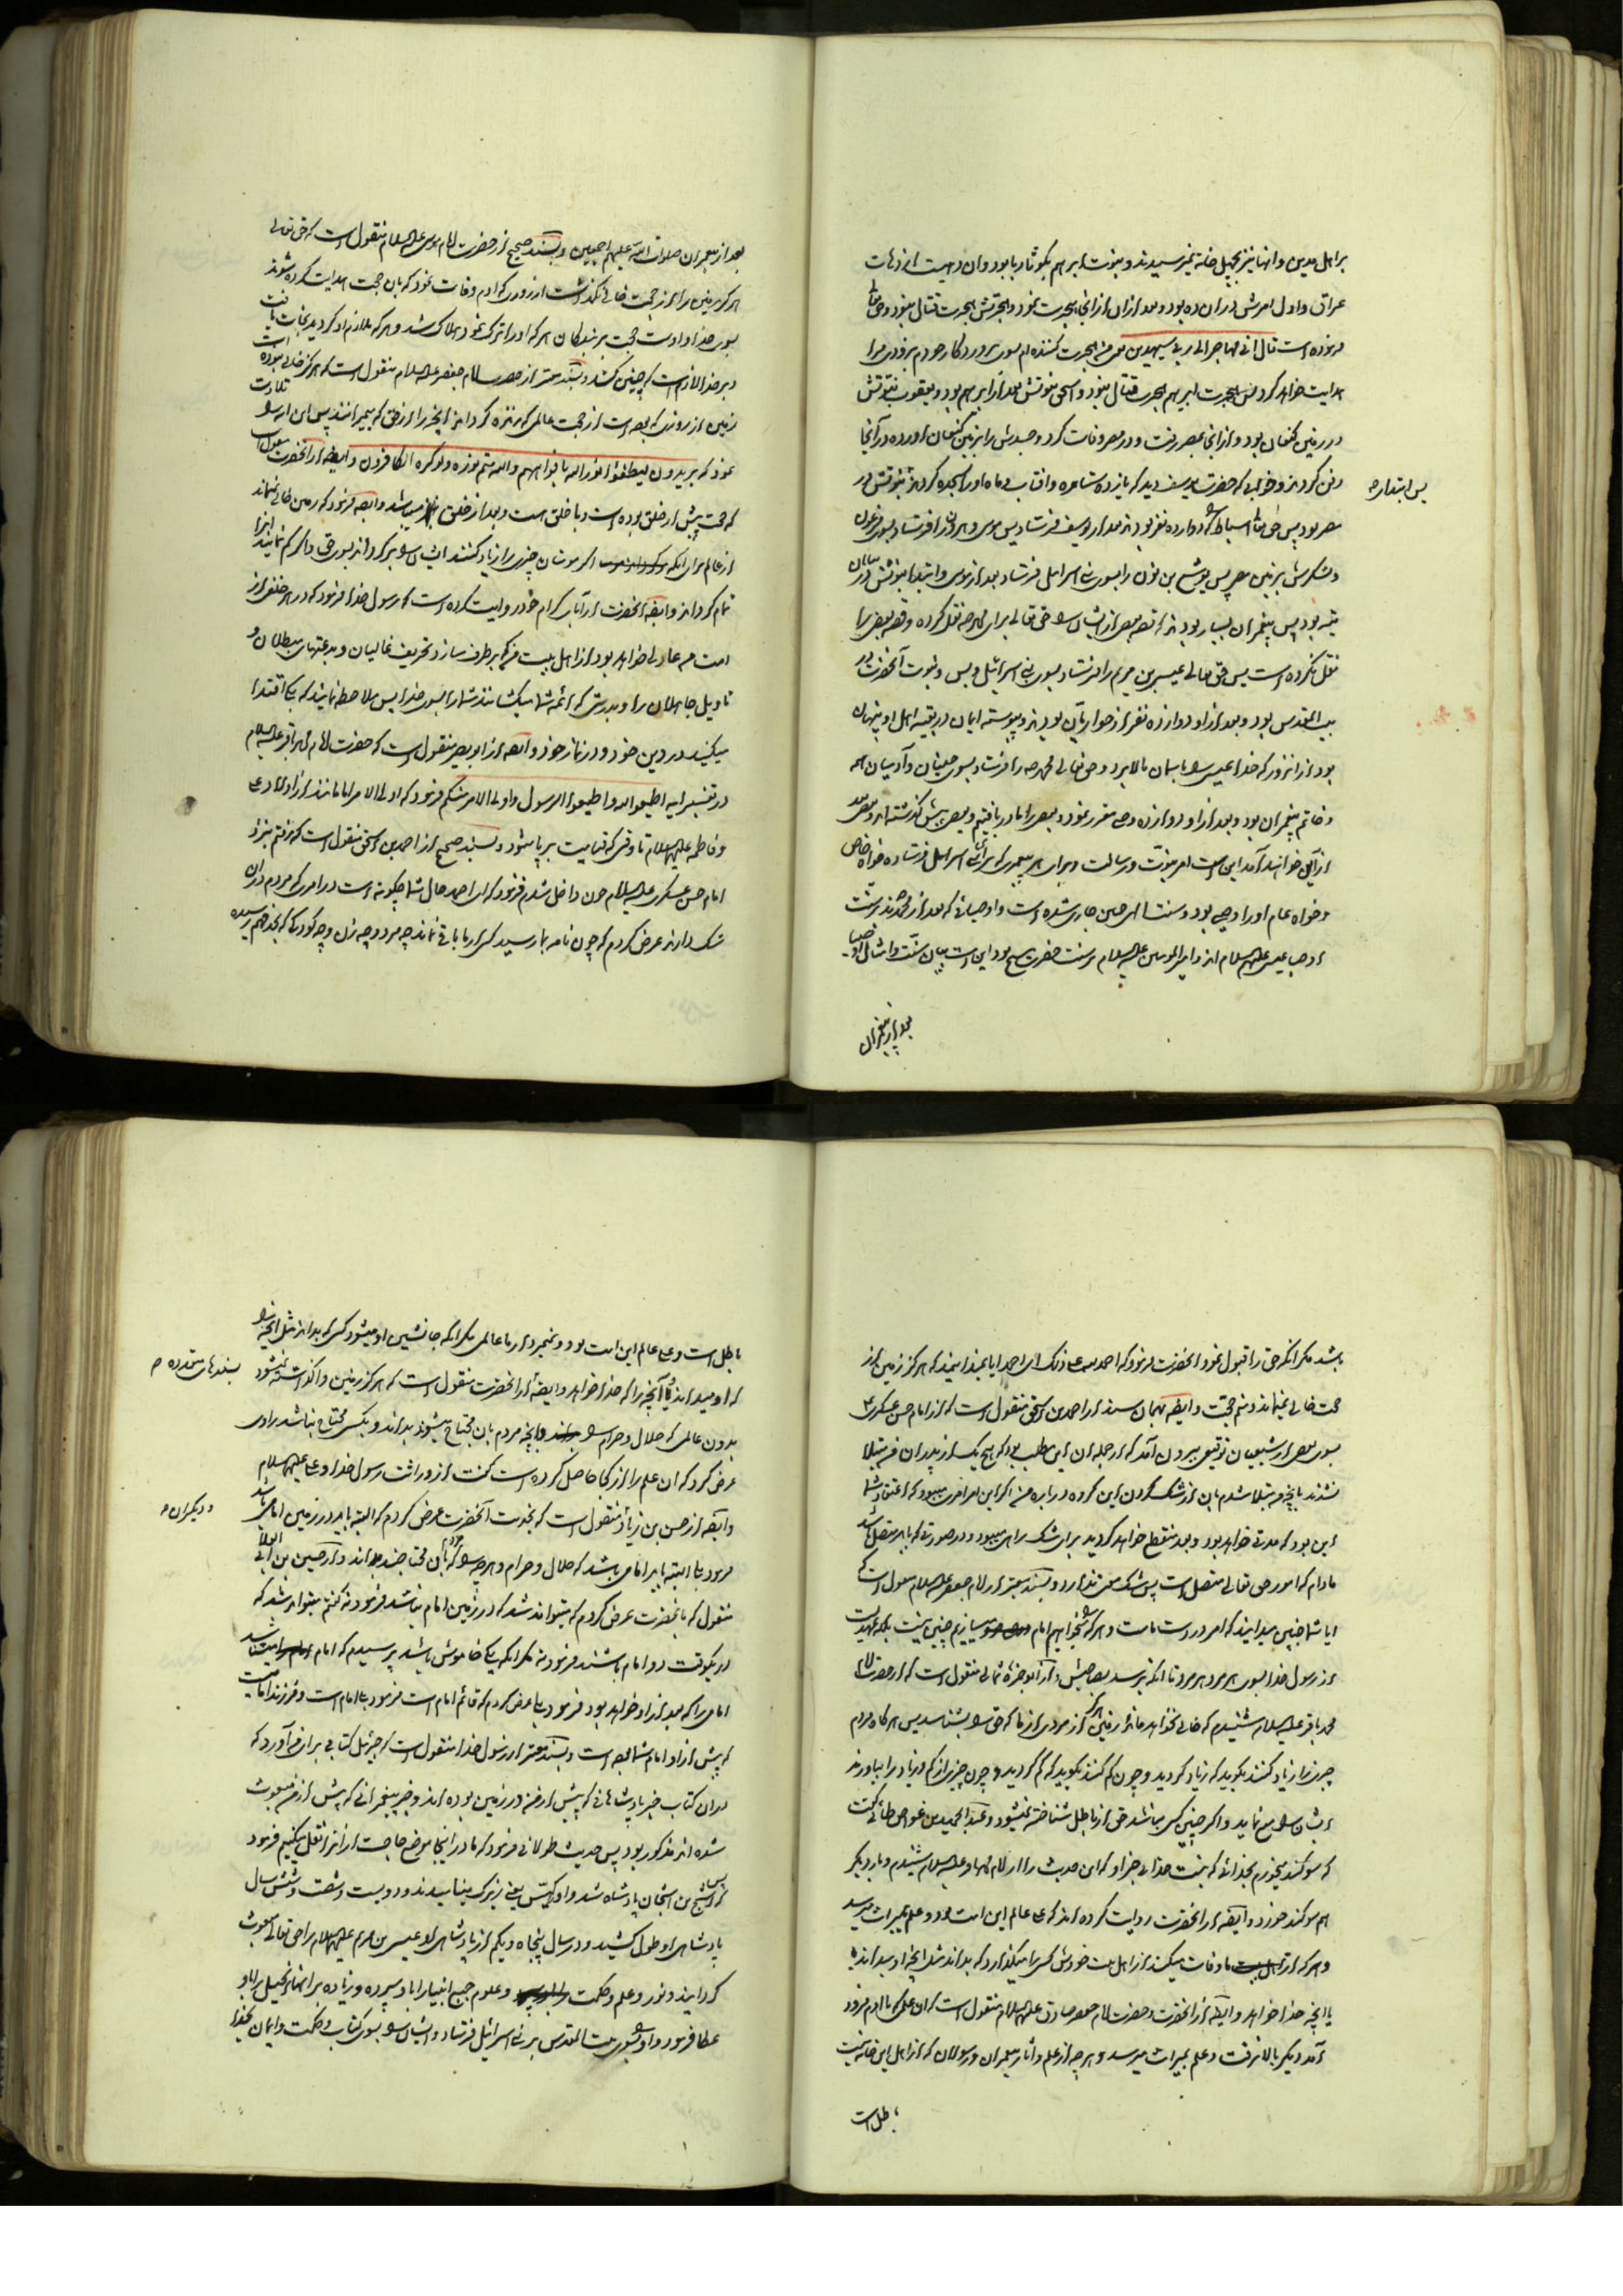 بر اهل مدین و انها نیز بچهل خانه نمیرسیدند و نبوت ابرهیم بکوثاربا بود و ان دهیست از دهات
عراق و اول امرش در ان ده بود و بعد ازان از انجا هجرت نمود و هجرتش هجرت قتال نبود و حق تعالی
فرموده است قال انی مهاجر الی ربی سیهدین یعنی من هجرت کننده ام بسوی پروردکار خودم بزودی مرا
هدایت خواهد کرد پس هجرت ابرهیم هجرت قتال نبود و اسحق نبوتش بعد از ابرهیم بود و یعقوب نبوتش
در زمین کنعان بود و از انجا بمصر رفت و در مصر وفات کرد و جسدش را بزمین کنعان اوردند در آنجا
دفن کردند و خوابی که حضرت یوسف دید که یازده ستاره و افتاب و ماه او را سجده کردند نبوتش در
پس ابتدای
مصر بود پس حق تعالی اسباط را که دوازده نفر بودند بعد از یوسف فرستاد پس موسی و هرون را فرستاد بسوی فرعون
و لشکرش بزمین مصر پس یوشع بن نون را بسوی بنی اسرائیل فرستاد بعد از موسی و ابتدا نبوتش در بیابان
تیه بود پس پیغمبران بسیار بودند که قصه بعضی از ایشان را حق تعالی برای محمد نقل کرده و قصه بعضی را
نقل نکرده است پس حق تعالی عیسی بن مریم را فرستاد بسوی بنی اسرائیل و بس و نبوت آنحضرت در
بیت المقدس بود و بعد از او دوازده نفر از حواریان بودند و پیوسته ایمان در بقیه اهل او پنهان
بود از انروز که خدا عیسی را باسمان بالا برد و حق تعالی محمد را فرستاد بسوی جنیان و آدمیان همه
و خاتم پیغمبران بود و بعد از او دوازده وصی مقرر نمود و بعضی را ما دریافتیم و بعضی پیش گذشته اند و بعضی بعد
ازین خواهند آمد این است امر نبوت و رسالت و برای هر پیغمبری که برای بنی اسرائیل فرستاده خواه خاص
و خواه عام او را وصی بود و سنت الهی چنین جاری شده است و اوصیائی که بعد از محمدند بر سنت
اوصیاء عیسی علیهم السلام اند و امیر المومنین علیه السلام بر سنت حضرت مسیح بود این است بیان سنت و امثال اوصیا
بعد از پیغمبران
بعد از پیغمبران صلوات الله علیهم اجمعین و بسند صحیح از حضرت امام موسی علیه السلام منقول است که حق تعالی
هرگز زمین را از حجت خالی نگذاشت از روزی که ادم وفات نمود که بان حجت هدایت کرده شوند
بسوی خدا و اوست حجت بر بندکان هر که او را ترک نمود هلاک شد و هر که ملازم او کردید نجات یافت
و بر خدا لازم است که چنین کند و بسند معتبر از حضرت امام جعفر علیه السلام منقول است که هرگز خالی نبوده است
زمین از روزی که بوده است از حجت عالمی که زنده کرداند انچه را از حق که بمیرانند پس این ایه را تلاوت
نمود که یریدون لیطفئوا نور الله بافواههم و الله متم نوره و لو کره الکافرون و ایضا از انحضرت منقول است
که حجت پیش از خلق بوده است و با خلق هست و بعد از خلق نیز میباشد و ایضا فرمود که زمین خالی نمیماند
از عالم برای انکه اگر مومنان چیزی را زیاد کنند ایشان را بر گرداند بسوی حق و اگر کم نمایند انرا
تمام گرداند و ایضا انحضرت از آباء کرام خود روایت کرده است که رسول خدا فرمود که در هر خلفی از
امت من عادلی خواهد بود از اهل بیت من که بر طرف سازد تحریف غالیان و بدعتهای مبطلان و
تاویل جاهلان را و بدرستی که ائمه شما میکشانند شما را بسوی خدا پس ملاحظه نمائید که بکه اقتدا
میکنید در دین خود و در نماز خود و ایضا از ابو بصیر منقول است که حضرت امام محمد باقر علیه السلام
در تفسیر ایه اطیعوا الله و اطیعوا الرسول و اولی الامر منکم فرمود که اولی الامر امامانند از اولاد علی
و فاطمه علیهم السلام تا وقتی که قیامت بر پا شود و بسند صحیح از احمد بن اسحق منقول است که رفتم بنزد
امام حسن عسکری علیه السلام چون داخل شدم فرمود که ای احمد حال شما چگونه است در امری که مردم دران
شک دارند عرض کردم که چون نامه بما رسید کسی از ما باقی نماند چه مرد و چه زن و چه کودکی که بحد فهم رسیده
باشد مگر انکه حق را قبول نمود انحضرت فرمود که احمد الله علی ذلک ای احمد ایا نمیدانید که هرگز زمین از
حجت خالی نمیماند و منم حجت و ایضا بهمان سند از احمد بن اسحق منقول است که از امام حسن عسکری ع
بسوی بعضی از شیعیان توقیعی بیرون آمد که از جمله ان این مطلب بود که هیچ یک از پدران من مبتلا
نشدند بانچه من مبتلا شدم بان از شک کردن این گروه در باره من اگر این امر امری میبود که اعتقاد شما
این بود که مدتی خواهد بود و بعد منقطع خواهد گردید برای شک راهی میبود و در صورتی که باید متصل باشد
مادام که امور حق تعالی متصل است پس شک معنی ندارد و بسند معتبر از امام جعفر علیه السلام منقول است که
ایا شما چنین میدانید که امر در دست ماست و هر که را میخواهیم امام میسازیم چنین نیست بلکه عهدیست
از رسول خدا بسوی مردی مردی تا انکه برسد بصاحبش و از ابو حمزه ثمالی منقول است که از حضرت امام
محمد باقر علیه السلام شنیدم که خالی نخواهد ماند زمین هرگز از مردی از ما که حق را بشناسد پس هر گاه مردم
چیزی را زیاد کنند بگوید که زیاد کردید و چون کم کنند بگوید که کم کردید و چون چیزی از کم و زیاد را نیاورند
ایشان را منع نماید و اگر چنین کسی نباشد حق از باطل شناخته نمیشود و عبد الحمید بن عواض طائی گفت
که سوگند میخورم بخدائی که نیست خدائی بجز او که این حدیث را از امام محمد باقر علیه السلام شنیدم و بار دیگر
هم سوگند خورد و ایضا از انحضرت روایت کرده اند که علی عالم این امت بود و علم بمیراث میرسد
و هر که از ما وفات میکند از اهل بیت خودش کسی را میگذارد که بداند مثل انچه او میداند یا
یا انچه خدا خواهد و ایضا از انحضرت و حضرت امام جعفر صادق علیهما السلام منقول است که ان علمی که با ادم فرود
آمد دیگر بالا نرفت و علم بمیراث میرسد و هر چه از علم و آثار پیغمبران و رسولان که از اهل این خانه نیست
باطل است
باطل است و علی عالم این امت بود و نمیمیرد از ما عالمی مگر انکه جانشین او میشود کسی که بداند مثل انچه را
که او میداند یا آنچه را که خدا خواهد و ایضا از انحضرت منقول است که هرگز زمین واگذاشته نمیشود
بسندهای متعدده
بدون عالمی که حلال و حرام را و انچه مردم بان محتاج میشوند بداند و بکسی محتاج نباشد راوی
عرض کرد که ان علم را از کجا حاصل کرده است گفت از وراثت رسول خدا و علی علیهما السلام
و ایضا از حسن بن زیاد منقول است که بخدمت آنحضرت عرض کردم که البته باید در زمین امامی باشد
و دیگران
فرمود بلی البته باید امامی باشد که حلال و حرام و هر چه را که مردم بان محتاجند بداند و از حسین بن ابی العلا
منقول که بانحضرت عرض کردم که میتواند شد که در زمین امام نباشد فرمود نه گفتم میتواند شد که
در یکوقت دو امام باشند فرمود نه مگر انکه یکی خاموش باشد پرسیدم که امام میشناسد
امامی را که بعد از او خواهد بود فرمود بلی عرض کردم که قائم امام است فرمود بلی امام است و فرزند امامیست
که پیش از او امام شما بوده است و بسند معتبر از رسول خدا منقول است که جبرئیل کتابی برای من آورد که
در ان کتاب خبر پادشاهانی که پیش از من در زمین بوده اند و خبر پیغمبرانی که پیش از من مبعوث
شده اند مذکور بود پس حدیث طولانی فرمود که ما در اینجا موضع حاجت از انرا نقل میکنیم فرمود
که چون اشج بن اشجان پادشاه شد و او را کیس یعنی زیرک مینامیدند و دویست و شصت و شش سال
پادشاهی او طول کشید و در سال پنجاه و یکم از پادشاهی او عیسی بن مریم علیهما السلام را حق تعالی مبعوث
گردانید و نور و علم و حکمت و علوم جمیع انبیا را باو سپرده و زیاده بر انها انجیل را باو
عطا فرمود و او را بسوی بیت المقدس بر بنی اسرائیل فرستاد و ایشان را بسوی کتاب و حکمت و ایمان بخدا